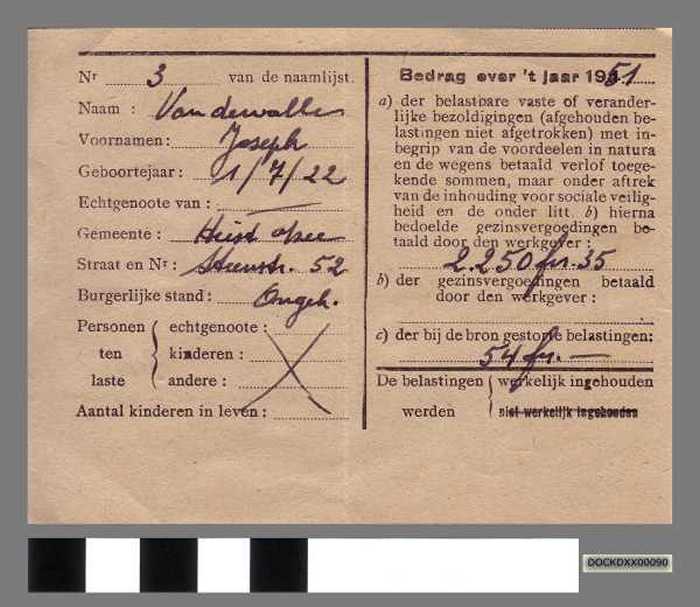 Nr 3 van de naamlijst.
Naam : Vandewalle
Voornamen: Joseph
Geboortejaar: 1/7/22
Echtgenote van : —
Gemeente : Heist a/zee
Straat en Nr : Steenstr. 52
Burgerlijke stand : Ongeh.
Personen ten laste { echtgenoote :
kinderen :
andere :
Aantal kinderen in leven :
Bedrag over 't jaar 1951
a) der belastbare vaste of verander-
lijke bezoldigingen (afgehouden be-
lastingen niet afgetrokken) met in-
begrip van de voordeelen in natura
en de wegens betaald verlof toege-
kende sommen, maar onder aftrek
van de inhouding voor sociale veilig-
heid en de onder litt. b) hierna
bedoelde gezinsvergoedingen be-
taald door den werkgever :
2.250 fr. 35
b) der gezinsvergoedingen betaald
door den werkgever :
c) der bij de bron gestorte belastingen:
54 fr. —
De belastingen werden { werkelijk ingehouden
niet werkelijk ingehouden
DOCKDXX00090